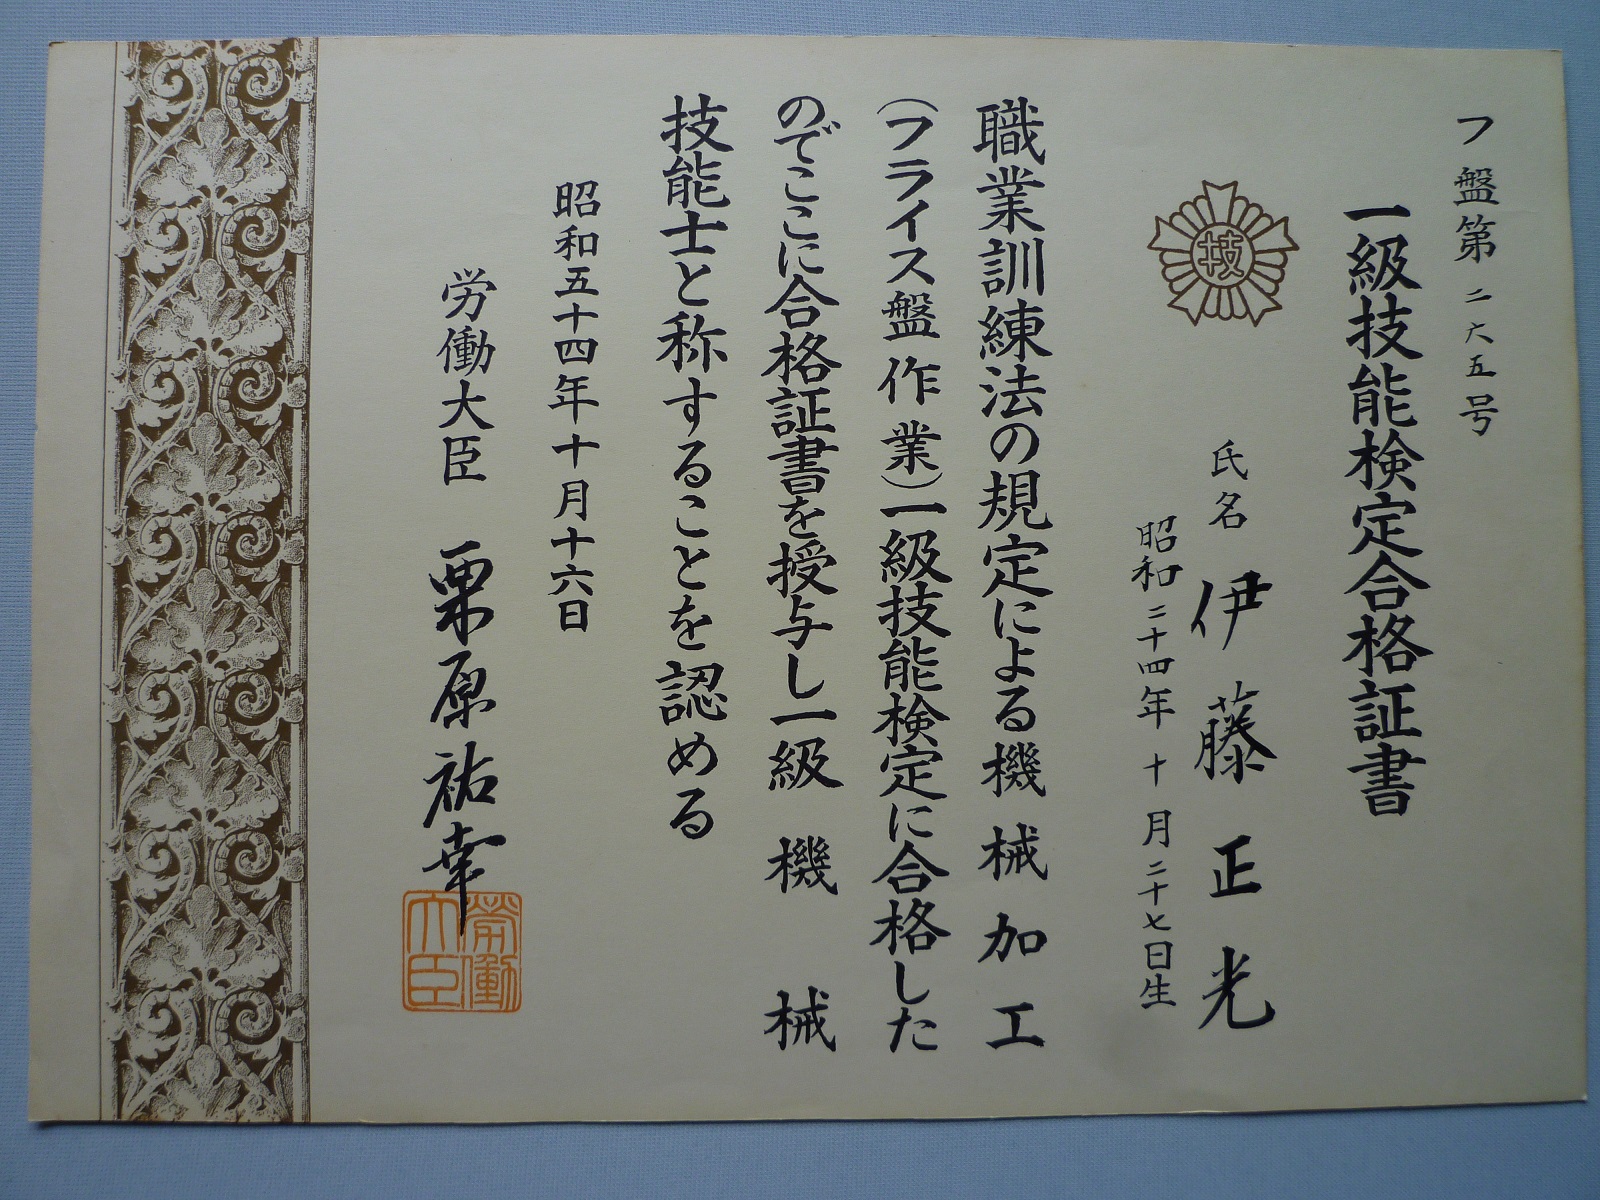 フ盤第二六五号
一級技能検定合格証書
技
氏名 伊藤正光
昭和二十四年十月二十七日生
職業訓練法の規定による機械加工
(フライス盤作業)一級技能検定に合格した
のでここに合格証書を授与し一級機械
技能士と称することを認める
昭和五十四年十月十六日
労働大臣 栗原祐幸
労働
大臣